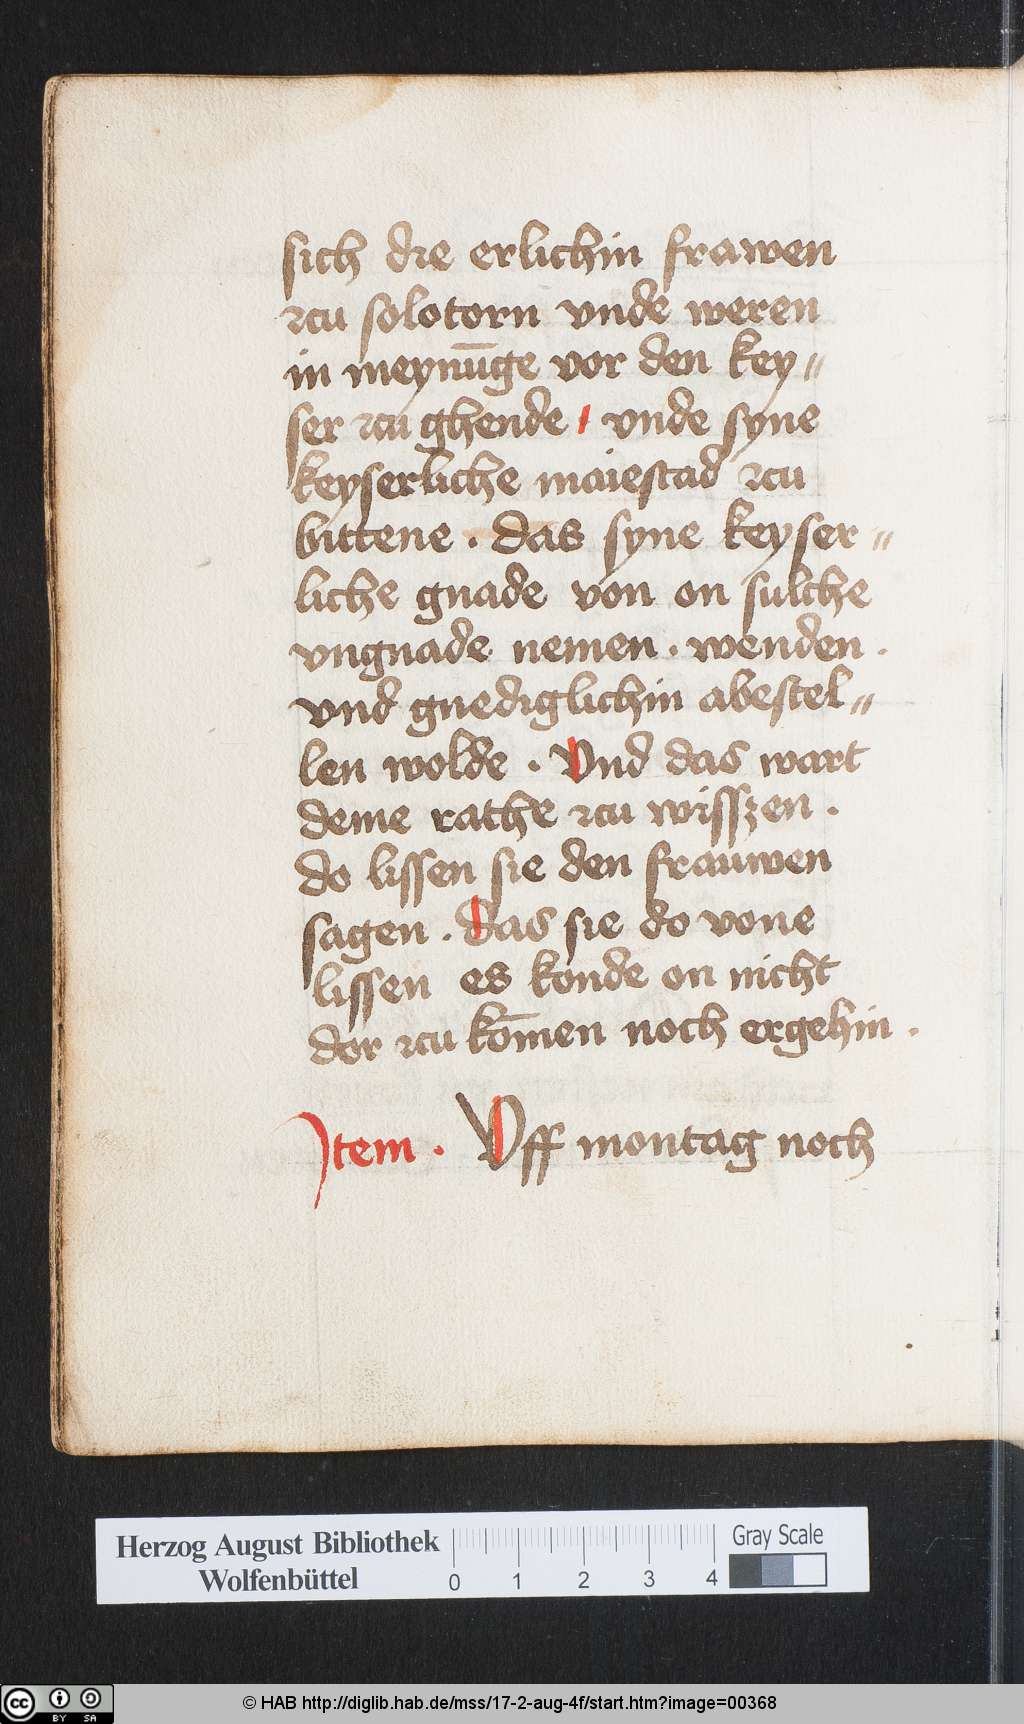 sich die erlichin frawen
zcu solotorn vnde weren
in meynu̅ge vor den key〃
ser zcu ghende ı vnde syne
keyserliche maiestad zcu
bittene . das syne keyser〃
liche gnade von on sulche
vngnade nemen . wenden .
vnd gnediglichin abestel〃
len wolde . Vnd das wart
deme rathe zcu wisszen .
do lissen sie den frauwen
sagen . das sie do vone
lissen es konde on nicht
dor zcu ko̅men noch ergehin .
Item . Vff montag noch
Herzog August Bibliothek
Wolfenbüttel
0 1 2 3 4
Gray Scale
cc BY SA
© HAB http://diglib.hab.de/mss/17-2-aug-4f/start.htm?image=00368